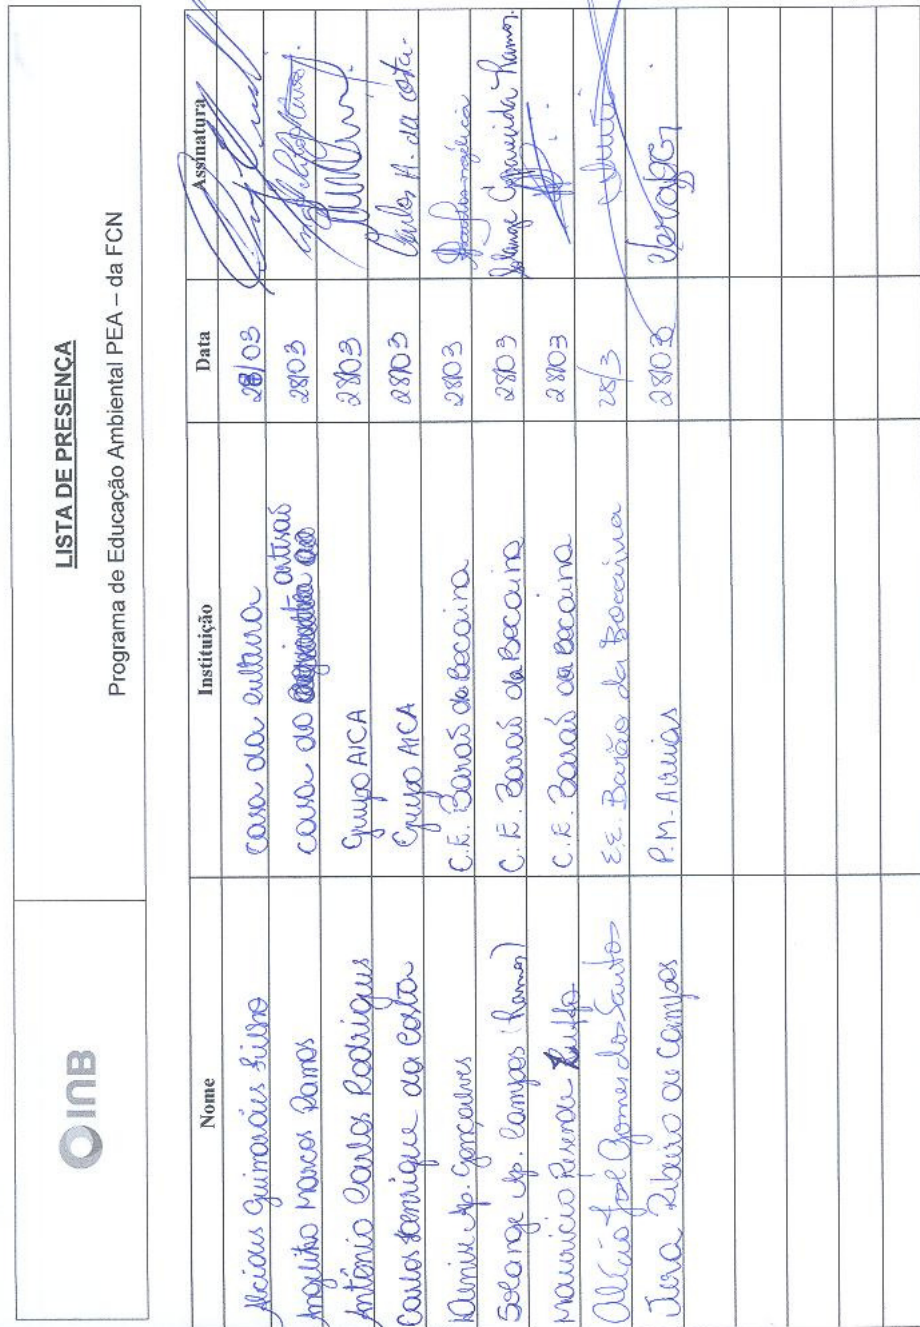 INB
LISTA DE PRESENÇA
Programa de Educação Ambiental PEA – da FCN
Nome Instituição Data Assinatura
Alcious Guimarães Filho casa da cultura 28/03
Angelitho Marcos Ramos casa do artesão 28/03
Antônio Carlos Rodrigues Grupo AICA 28/03
Carlos Henrique da Costa Grupo AICA 28/03 Carlos H. da Costa.
Denise Ap. Gonçalves C.E. Barão da Bocaina 28/03
Solange Ap. Campos (Ramos) C.E. Barão da Bocaina 28/03 Solange Aparecida Ramos.
Mauricio Resende Ruffo C.E. Barão da Bocaina 28/03
Alécio José Gomes dos Santos E.E. Barão da Bocaina 28/3
Vera Ribeiro de Campos P.M. Areias 28/03